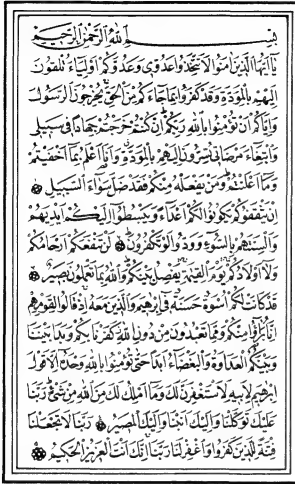 بِسْمِ اللّٰهِ الرَّحْمٰنِ الرَّحِيمِ
يَا اَيُّهَا الَّذِينَ اٰمَنُوا لَا تَتَّخِذُوا عَدُوِّى وَعَدُوَّكُمْ اَوْلِيَاءَ تُلْقُونَ
اِلَيْهِمْ بِالْمَوَدَّةِ وَقَدْ كَفَرُوا بِمَا جَاءَكُمْ مِنَ الْحَقِّ يُخْرِجُونَ الرَّسُولَ
وَاِيَّاكُمْ اَنْ تُؤْمِنُوا بِاللّٰهِ رَبِّكُمْ اِنْ كُنْتُمْ خَرَجْتُمْ جِهَادًا فِى سَبِيلِى
وَابْتِغَاءَ مَرْضَاتِى تُسِرُّونَ اِلَيْهِمْ بِالْمَوَدَّةِ وَاَنَا اَعْلَمُ بِمَا اَخْفَيْتُمْ
وَمَا اَعْلَنْتُمْ وَمَنْ يَفْعَلْهُ مِنْكُمْ فَقَدْ ضَلَّ سَوَاءَ السَّبِيلِ
اِنْ يَثْقَفُوكُمْ يَكُونُوا لَكُمْ اَعْدَاءً وَيَبْسُطُوا اِلَيْكُمْ اَيْدِيَهُمْ
وَاَلْسِنَتَهُمْ بِالسُّوءِ وَوَدُّوا لَوْ تَكْفُرُونَ لَنْ تَنْفَعَكُمْ اَرْحَامُكُمْ
وَلَا اَوْلَادُكُمْ يَوْمَ الْقِيٰمَةِ يَفْصِلُ بَيْنَكُمْ وَاللّٰهُ بِمَا تَعْمَلُونَ بَصِيرٌ
قَدْ كَانَتْ لَكُمْ اُسْوَةٌ حَسَنَةٌ فِى اِبْرٰهِيمَ وَالَّذِينَ مَعَهُ اِذْ قَالُوا لِقَوْمِهِمْ
اِنَّا بُرَءٰؤُا مِنْكُمْ وَمِمَّا تَعْبُدُونَ مِنْ دُونِ اللّٰهِ كَفَرْنَا بِكُمْ وَبَدَا بَيْنَنَا
وَبَيْنَكُمُ الْعَدَاوَةُ وَالْبَغْضَاءُ اَبَدًا حَتّٰى تُؤْمِنُوا بِاللّٰهِ وَحْدَهُ اِلَّا قَوْلَ
اِبْرٰهِيمَ لِاَبِيهِ لَاَسْتَغْفِرَنَّ لَكَ وَمَا اَمْلِكُ لَكَ مِنَ اللّٰهِ مِنْ شَىْءٍ رَبَّنَا
عَلَيْكَ تَوَكَّلْنَا وَاِلَيْكَ اَنَبْنَا وَاِلَيْكَ الْمَصِيرُ رَبَّنَا لَا تَجْعَلْنَا
فِتْنَةً لِلَّذِينَ كَفَرُوا وَاغْفِرْ لَنَا رَبَّنَا اِنَّكَ اَنْتَ الْعَزِيزُ الْحَكِيمُ